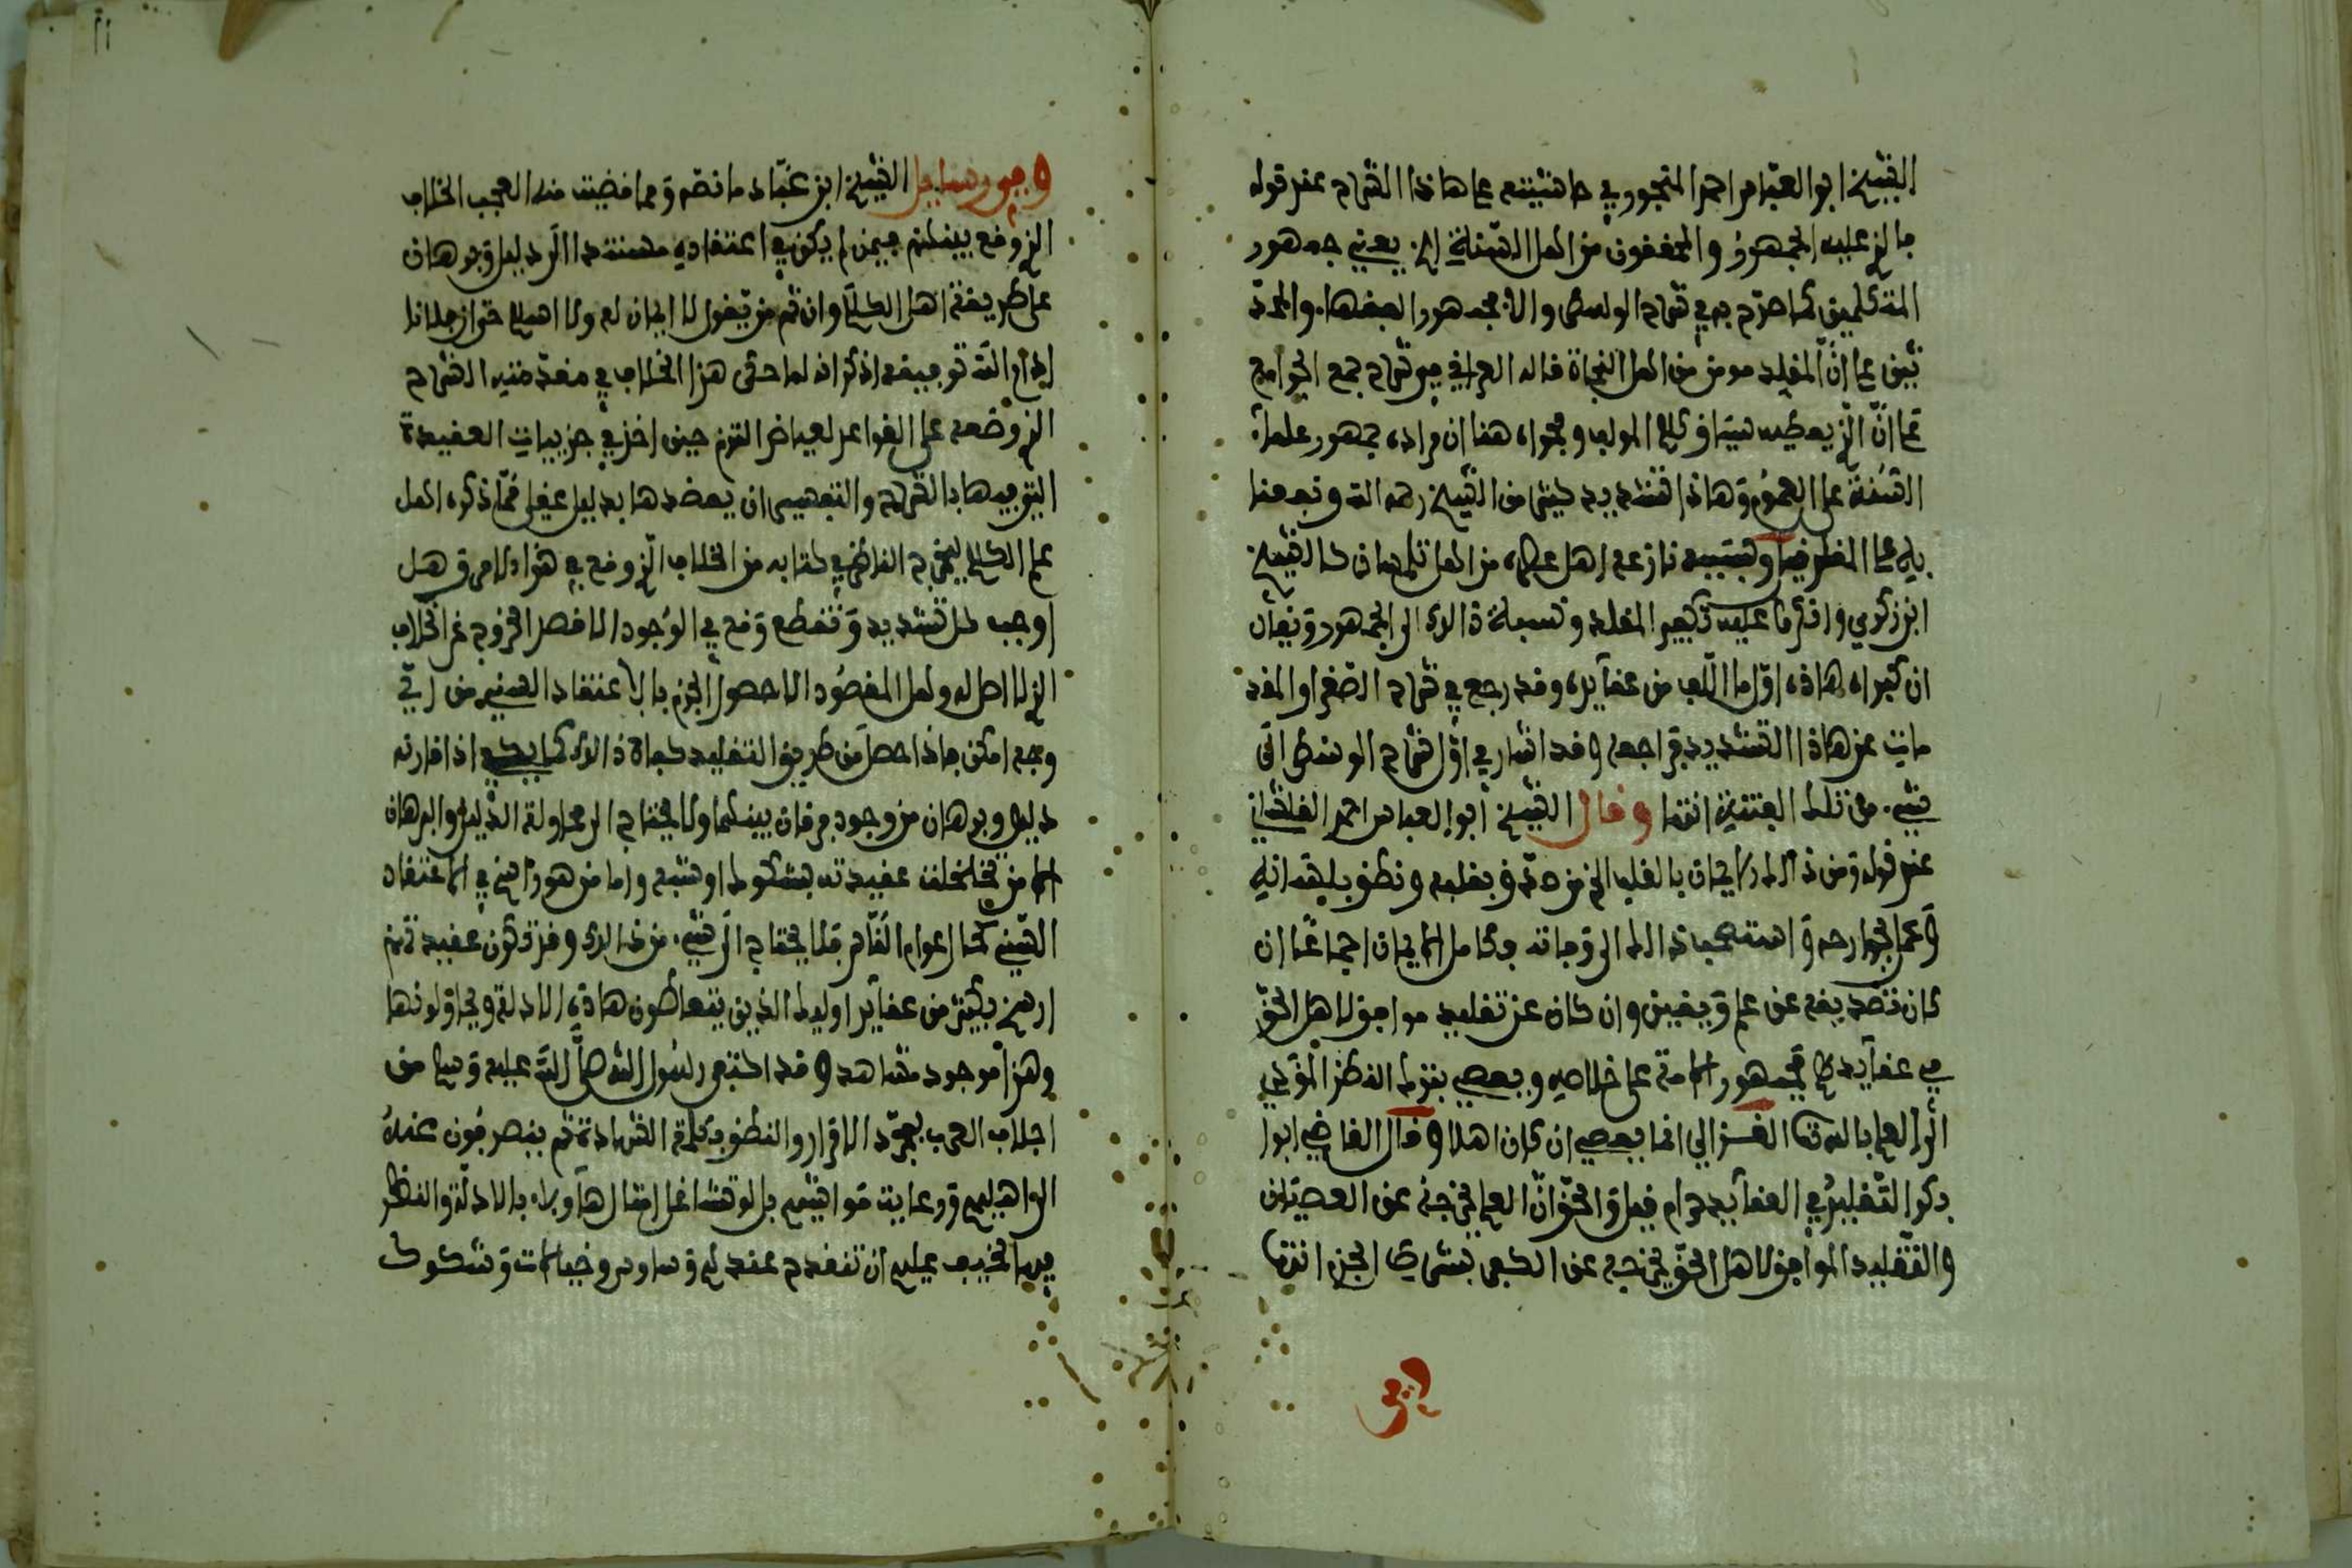 الشيخ ابو العباس احمد المنجور في حاشيته على هاذا الشرح عند قوله
فالذي عليه الجمهور والمحققون من اهل السنة الخ يعني جمهور
المتكلمين كما صرّح به في شرح الوسطى والا فجمهور الفقهاء والمحد
ثين على انّ المقلد مومن من اهل النجاة قاله العراقي في شرح جمع الجوامع
على انّ الذي يعطيه سياق كلام المولف وفحواه هنا ان مراده جمهور علماء
السُنّة على العموم وهاذا تشديد كبير من الشيخ رحمه الله وتبعه
وبسببه نازعه اهل عصره من اهل تلمسان كالشيخ
ابن زكري وانكروا عليه تكفير المقلد ونسبة ذالك الى الجمهور ويقال
ان كبراه هاذه اوّل ما الّف من عقآيده وقد رجع في شرح الصغرا والمقد
مات عن هاذا التشديد فراجعه وقد اشار في اوّل شرح الوسطى الى
شيء من تلك الفتنة انتها وقال الشيخ ابوا العباس احمد القلشاني
عند قوله ومن ذالك الايمان بالقلب الخ من صدّق بقلبه ونطق بلسانه
وعمل بجوارحه واستصحب ذالك الى وفاته فكامل الايمان اجماعًا ان
كان تصديقه عن علم ويقين وان كان عن تقليد موافق لاهل الحقّ
في عقآيدهم فجمهور الامة على خلاصه ويعصي بترك النظر المؤدي
الى العلم بالله تعا الغزالي انما يعصي ان كان اهلا وقال القاضي ابوا
بكر التّقليد في العقآيد حرام قيل والحقّ انّ العلم يخرجه عن العصيان
والتّقليد الموافق لاهل الحقّ يخرجه عن الكفر بشرط الجزم انتها
وفي
وفي رسايل الشيخ ابن عبّاد ما نصّه ومما قضيت منه العجب الخلاف
الذي وقع بينكم فيمن لم يكن في اعتقاده مستندا الى دليل وبرهان
على طريقة اهل الكلام وان ثم من يقول لا ايمان له ولا اسلام
توفيقه اذكر انه لما حكى هذا الخلاف في مقدمتيه الشرح
الذي وضعه على القواعد لعياض التزم حين اخذ في جزييات العقيدة
الشرح والتفسير ان يعضدها بدليل عقلي ممّا ذكره اهل
علم الكلام ليخرج الناظر في كتابه من الخلاف الذي وقع في هذا الامر وهل
اوجب كل تشديد وتنطع وقع في الوُجود الا قصد الخروج عن الخلاف
الذي لا اصل له وهل المقصُود الا حصول الجزم بالاعتقاد السني من ايّ
وجه امكن فاذا حصل من طريق التقليد كفاه ذالك كما يكفيه اذا قارنه
دليل وبرهان من وجود فرقان بينهما ولا يحتاج الى محاولة الدليل والبرهان
الا من تخلخلت عقيدته بشكوك او شبه واما من هو راسخ في الاعتقاد
السّنّي كحال عوام النّاس فلا يحتاج الى شيء من ذالك وقد تكون عقيدتهم
ارسخ بكثير من عقآيد اوليك الذين يتعاطون هاذه الادلة ويحاولونها
وهذا موجود مشاهد وقد اكتفى رسُول الله صلّى الله عليه وسلم من
اجلاف العرب بمجرّد الاقرار والنطق بكلمة الشهادة ثم ينصرفون عنهُ
الى اهليهم ورعاية مواشيهم بل لو تشاغل امثال هآولاه بالادلة والنظر
فيها لخيف عليهم ان تنقدح عندهم وساوس وخيالات وشكوك